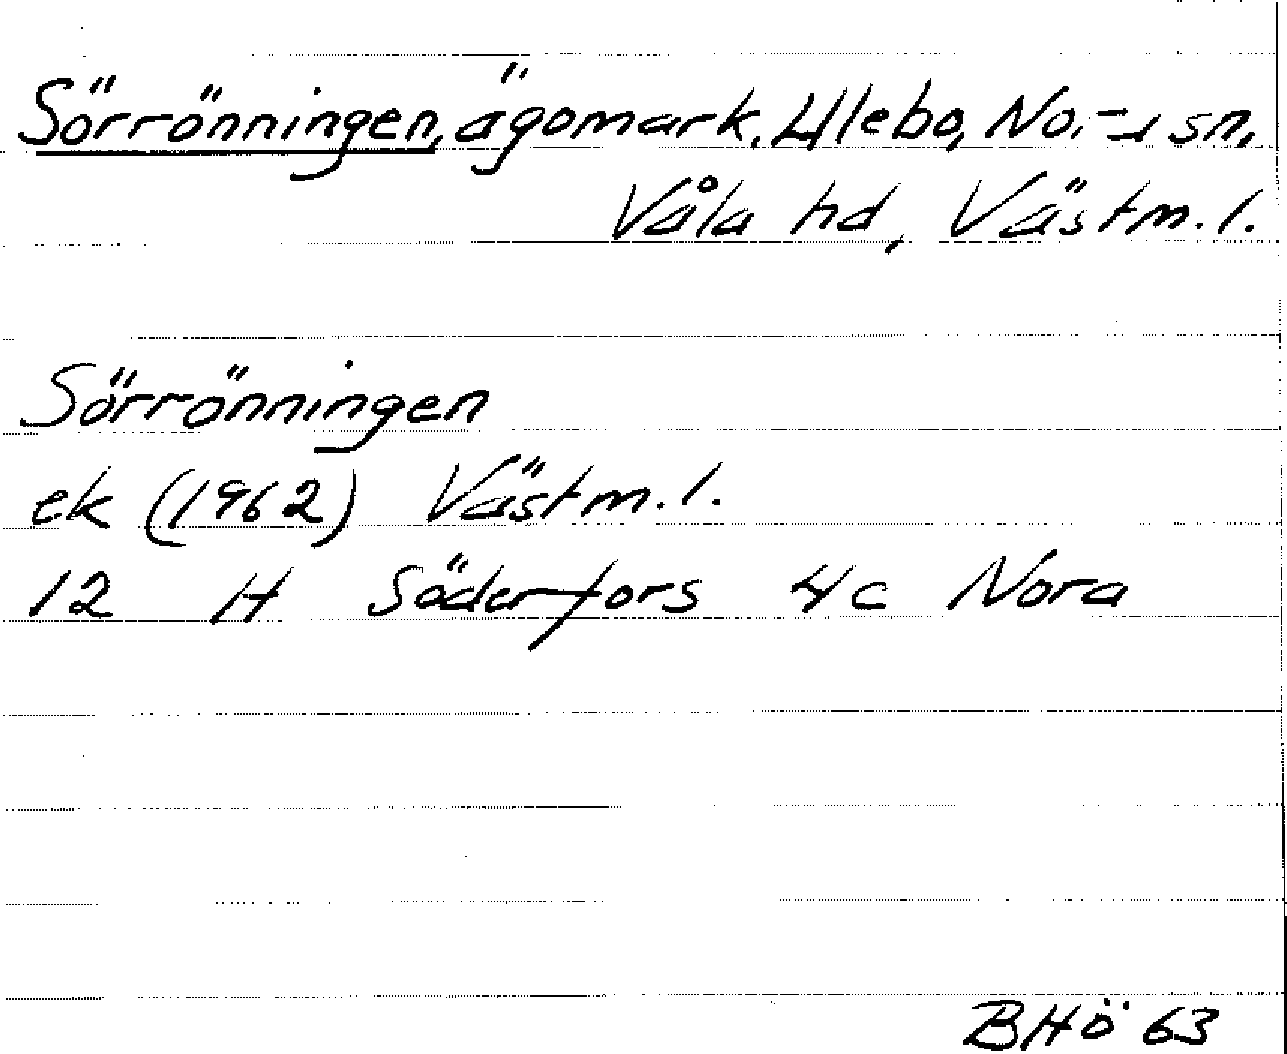 Sörrönningen, ägomark, Ulebo, No.-a sn,
Våla hd, Västm. l.
Sörrönningen
ek (1962) Västm. l.
12 H Söderfors 4c Nora
BHÖ 63